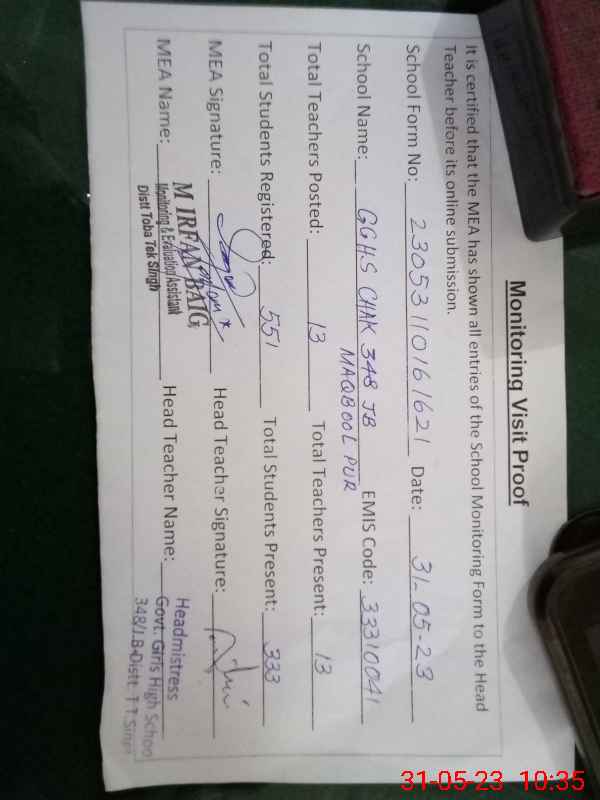 Monitoring Visit Proof
It is certified that the MEA has shown all entries of the School Monitoring Form to the Head
Teacher before its online submission.
School Form No: 23053110161621 Date: 31-05-23
School Name: GGHS CHAK 348 JB EMIS Code: 33310041
MAQBOOL PUR
Total Teachers Posted: 13 Total Teachers Present: 13
Total Students Registered: 551 Total Students Present: 333
MEA Signature: Head Teacher Signature:
MEA Name: M IRFAN BAIG Head Teacher Name: Headmistress
Monitoring & Evaluation Assistant Govt. Girls High School
Distt Toba Tek Singh 348/J.B-Distt. T.T.Singh
31-05-23 10:35